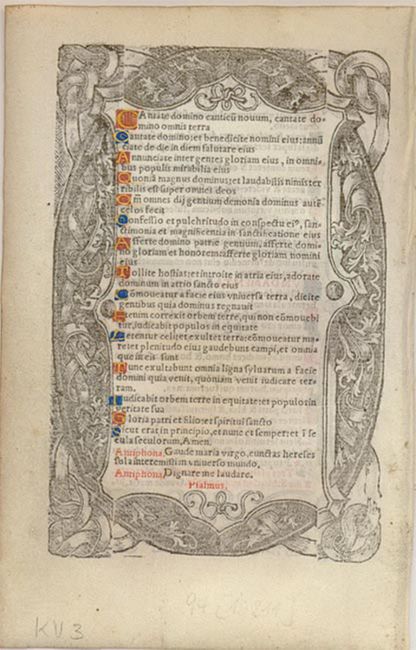 CAntate domino canticū novum, cantate do-
mino omnis terra
Cantate domino: et benedicite nomini eius: annū
ciate de die in diem salutare eius
Annunciate inter gentes gloriam eius, in omni-
bus populis mirabilia eius
Quoniā magnus dominus: et laudabilis nimis: ter
ribilis est super omnes deos
Qm̄ omnes dij gentium demonia dominus autē
celos fecit
Confessio et pulchritudo in conspectu ei⁹, san-
ctimonia et magnificentia in sanctificatione eius
Afferte domino patrie gentium, afferte domi-
no gloriam et honorem: afferte gloriam nomini
eius
Tollite hostias: et introite in atria eius, adorate
dominum in atrio sancto eius
Cōmoueatur a facie eius vniuersa terra, dicite
gentibus quia dominus regnauit
Etenim correxit orbem terre, qui non cōmouebi
tur, iudicabit populos in equitate
Letentur celi: et exultet terra: cōmoueatur ma-
re: et plenitudo eius gaudebunt campi, et omnia
que in eis sunt
Tunc exultabunt omnia ligna syluarum a facie
domini quia venit, quoniam venit iudicare ter-
ram.
Iudicabit orbem terre in equitate: et populos in
veritate sua
Gloria patri et filio: et spiritui sancto
Sicut erat in principio, et nunc et semper: et ī se
cula seculorum, Amen.
Antiphona. Gaude maria virgo, cunctas hereses
sola interemisti in vniuerso mundo.
Antiphona. Dignare me laudare.
Psalmus.
KV3